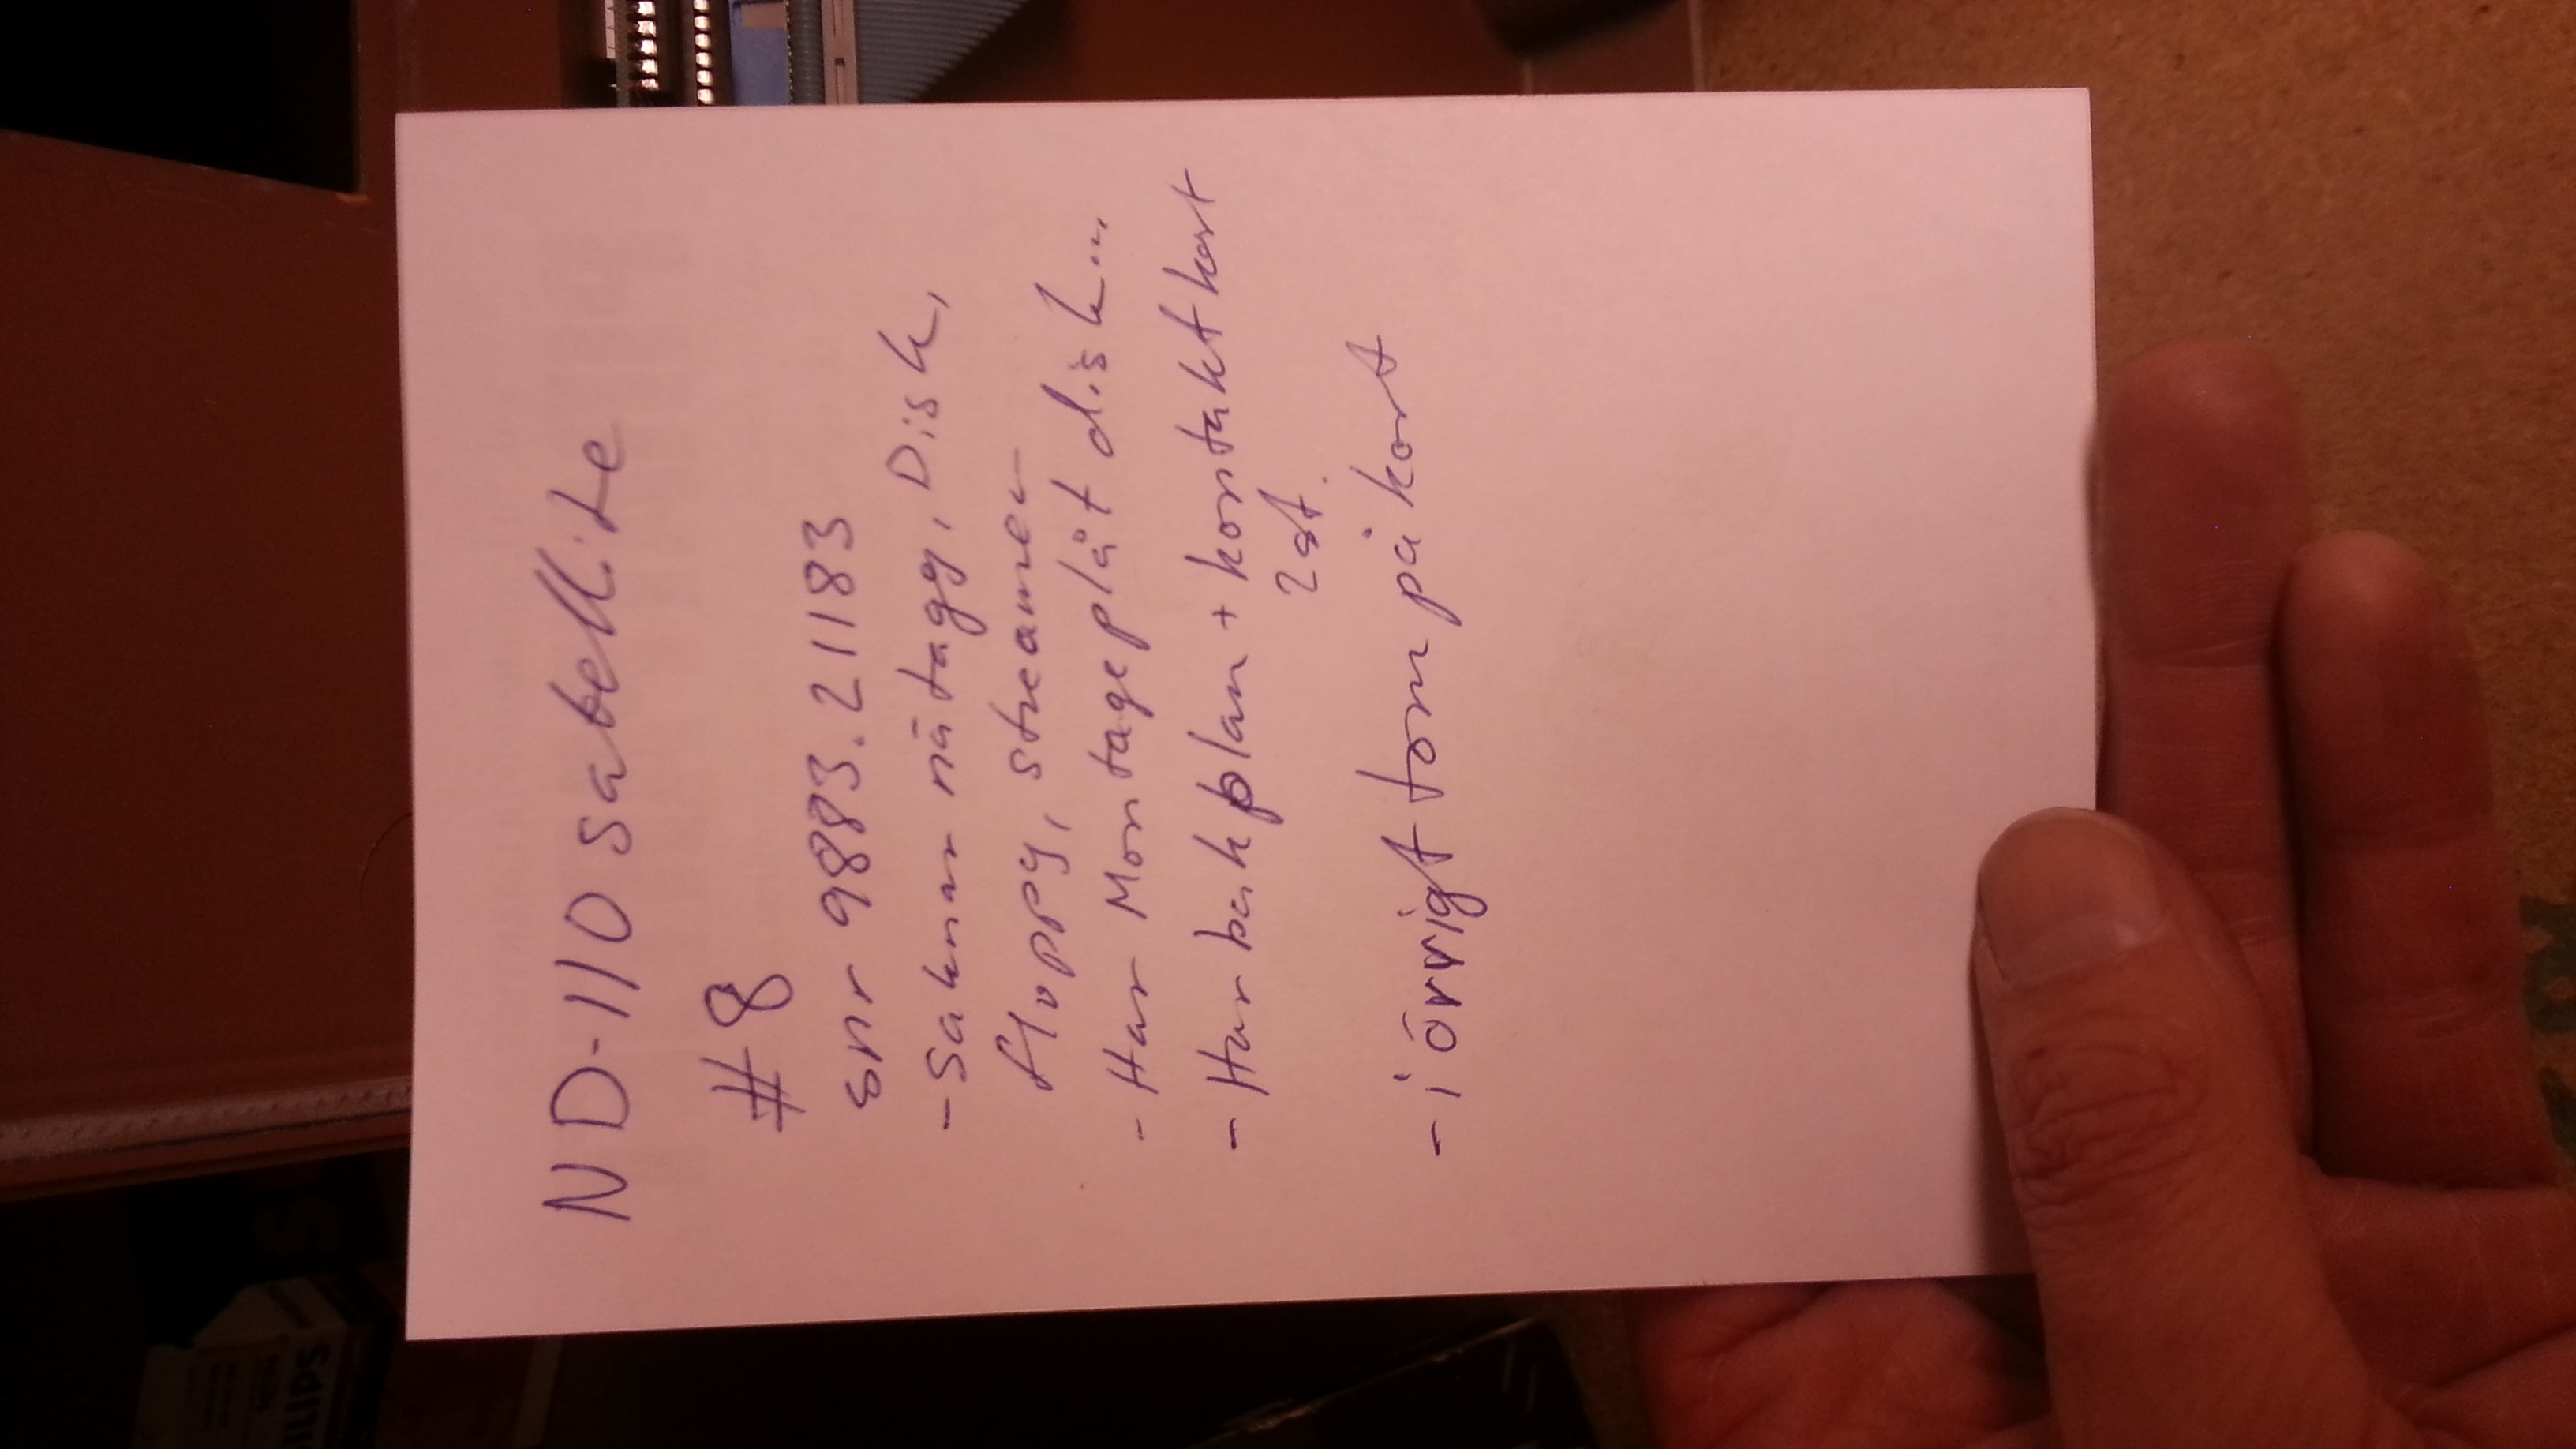 ND-110 satellite
#8
snr 9883.21183
- Saknar nätagg, Disk,
floppy, streamer
- Har Montageplåt disk...
- Har bakplan + kontaktkort
2st.
- i övrigt tom på kort